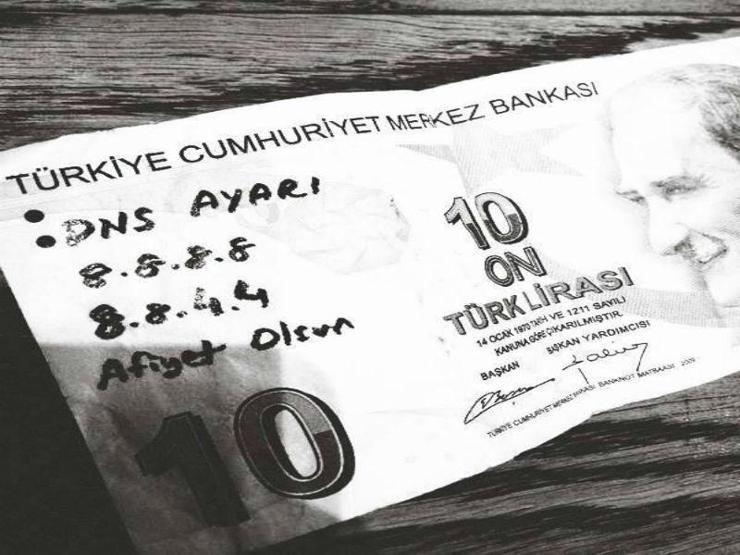 TÜRKİYE CUMHURİYET MERKEZ BANKASI
DNS AYARI
8.8.8.8
8.8.4.4
Afiyet Olsun
10
ON
TÜRK LİRASI
14 OCAK 1970 TARİH VE 1211 SAYILI
KANUNA GÖRE ÇIKARILMIŞTIR.
BAŞKAN BAŞKAN YARDIMCISI
TÜRKİYE CUMHURİYET MERKEZ BANKASI BANKNOT MATBAASI 2009
10